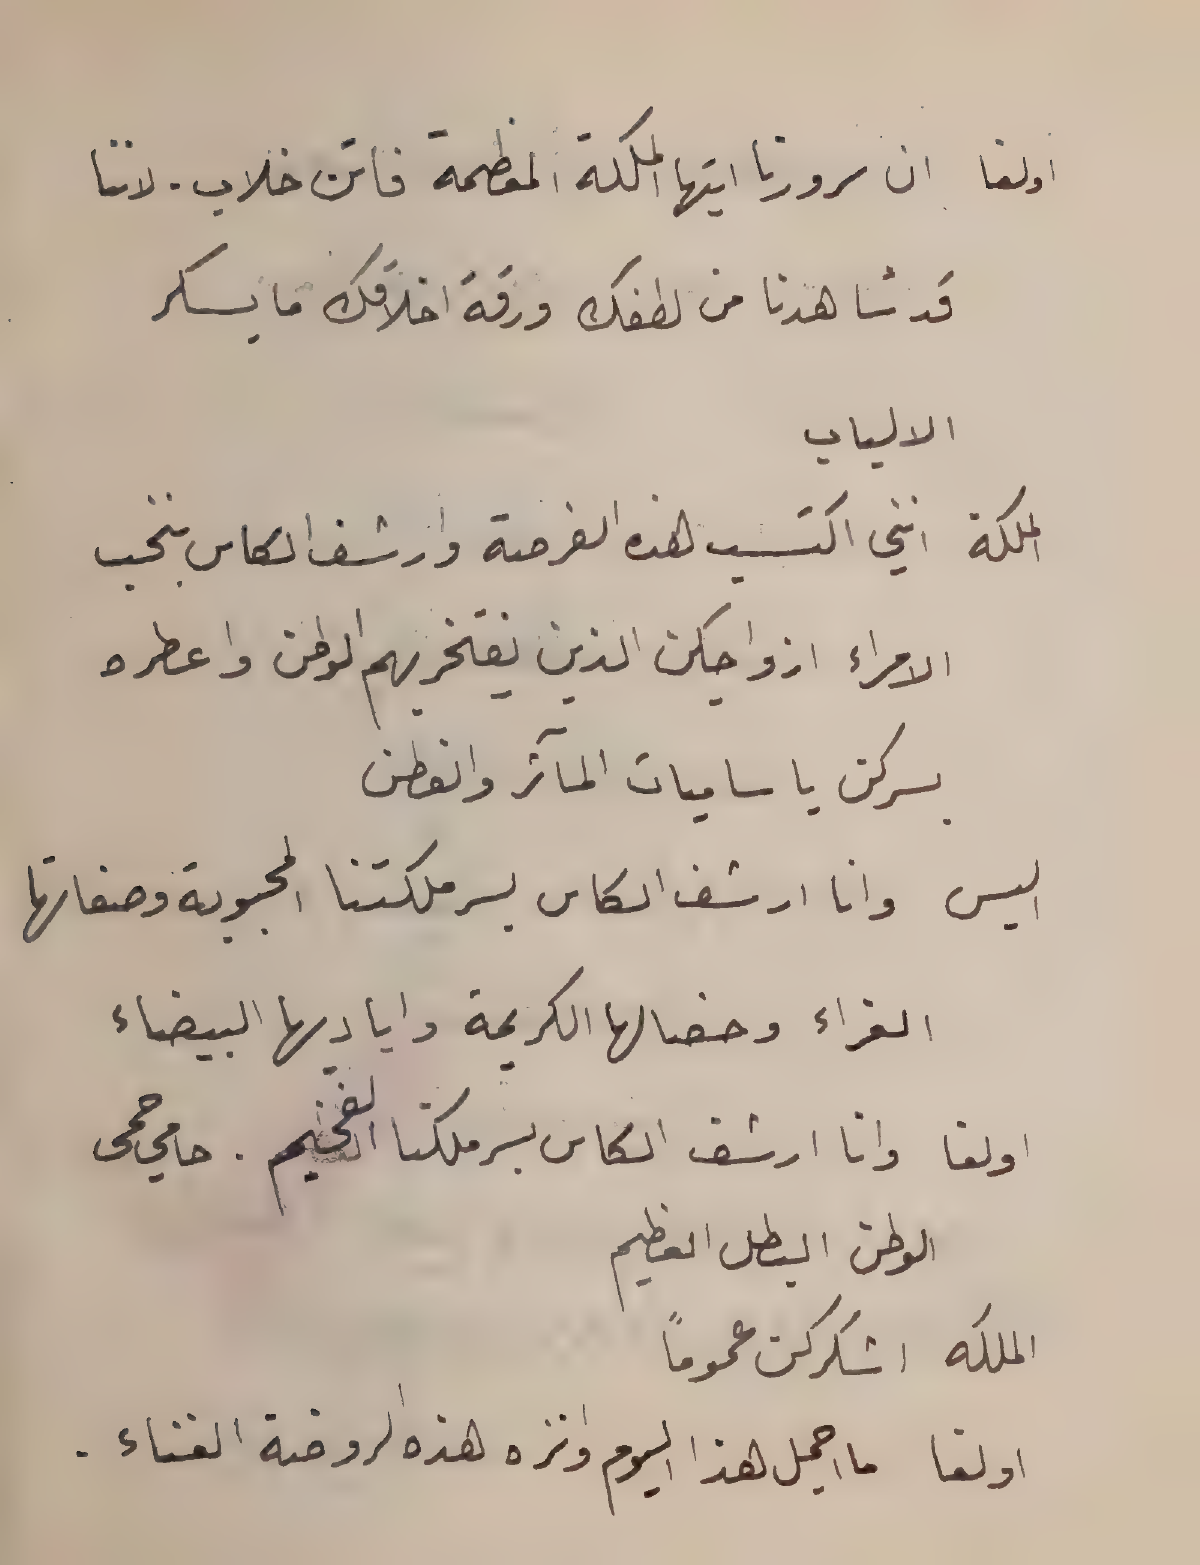 اولغا ان سرورنا ايتها الملكة المعظمة فاتن خلاب. لاننا
قد شاهدنا من لطفك ورقة اخلاقك ما يسكر
الالباب
الملكة انني اكتسب هذه الفرصة وارشف الكاس بنخب
الامراء ازواجكن الذين يفتخر بهم الوطن واعطره
بسركن يا ساميات المآثر والفطن
اليس وانا ارشف الكاس بسر ملكتنا المحبوبة وصفاتها
الغراء وخصالها الكريمة واياديها البيضاء
اولغا وانا ارشف الكاس بسر ملكنا الفخيم. حامي حمى
الوطن البطل العظيم
الملكه اشكركن عموماً
اولغا ما اجمل هذا اليوم وانزه هذه الروضة الغناء.